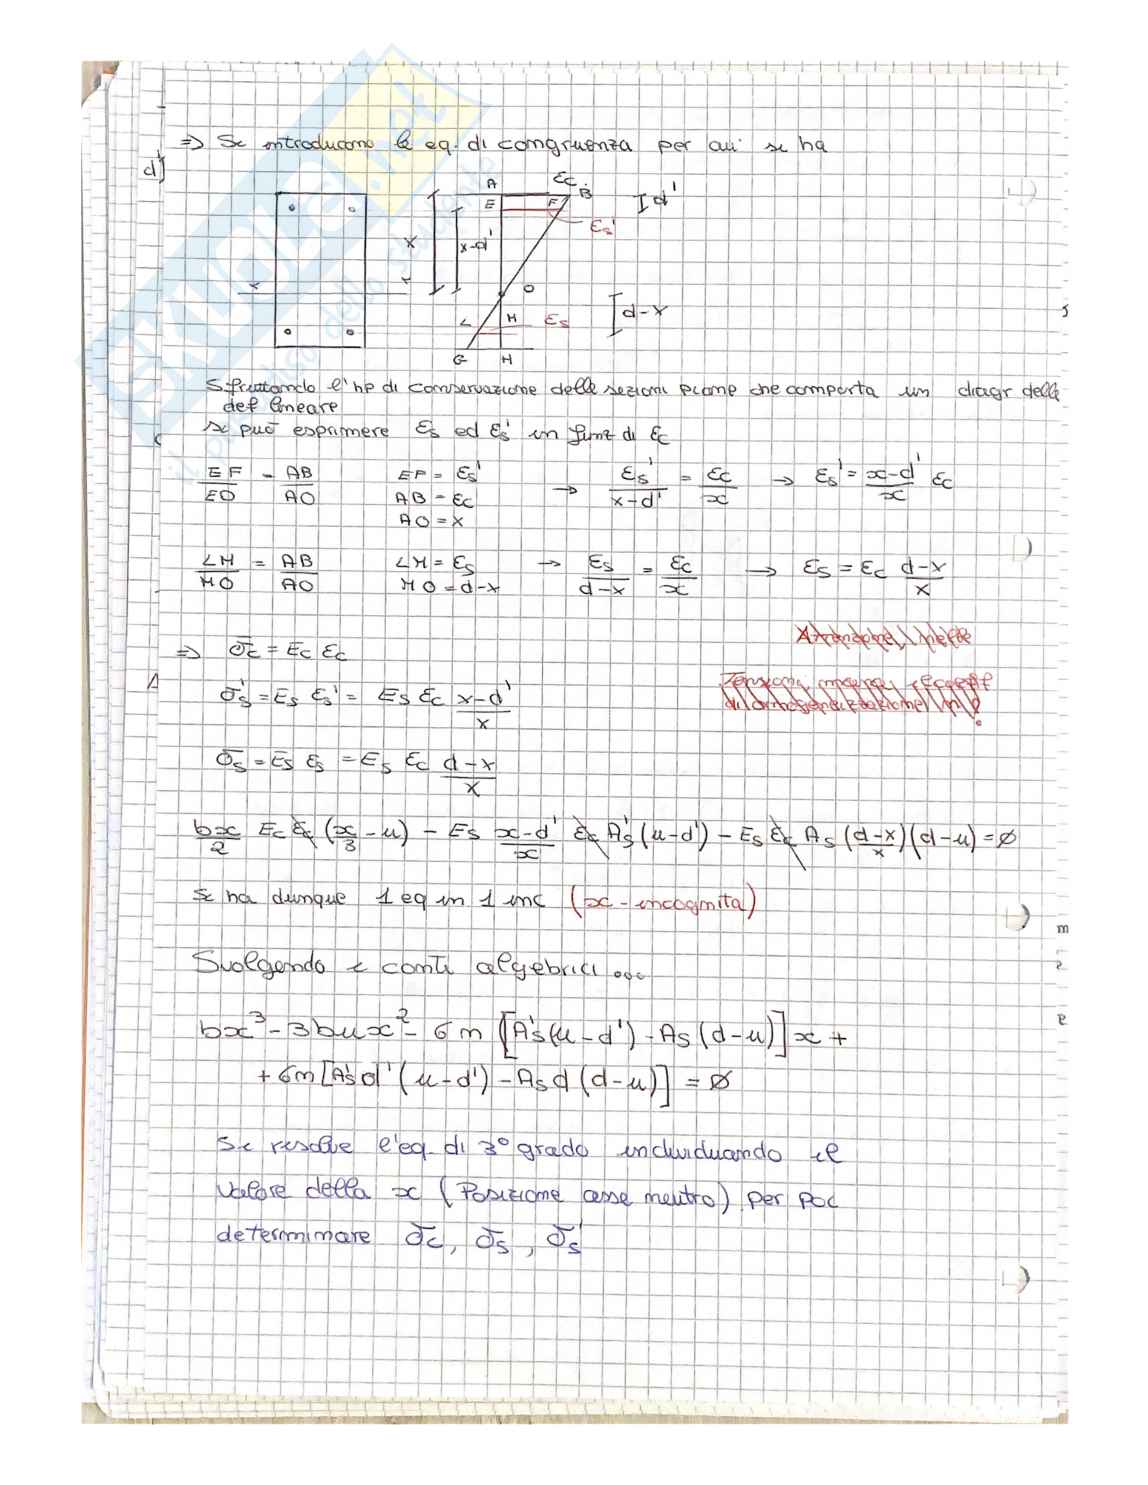 ⇒ Se introducono le eq. di congruenza per cui si ha
d')
A εc B
E F I d'
εs'
x x-d'
O
L H εs d-x
G H
Sfruttando l'hp di conservazione delle sezioni piane che comporta un diagr delle
def lineare
si può esprimere εs ed εs' in funz di εc
EF/EO = AB/AO EF = εs' → εs'/(x-d') = εc/x → εs' = (x-d')/x εc
AB = εc
AO = x
LH/HO = AB/AO LH = εs → εs/(d-x) = εc/x → εs = εc (d-x)/x
HO = d-x
⇒ σc = Ec εc
σs' = Es εs' = Es εc (x-d')/x
σs = Es εs = Es εc (d-x)/x
bx/2 Ec εc (x/3 - u) - Es (x-d')/x εc As' (u-d') - Es εc As ((d-x)/x)(d-u) = ∅
Si ha dunque 1 eq in 1 inc (x - incognita)
Svolgendo i conti algebrici ...
bx³ - 3bux² - 6n [As'(u-d') - As(d-u)] x +
+ 6n [As'd'(u-d') - As d (d-u)] = ∅
Si risolve l'eq. di 3° grado individuando il
valore della x (Posizione asse neutro) per poi
determinare σc, σs, σs'
SKUOLA.net
il paradiso dello studente